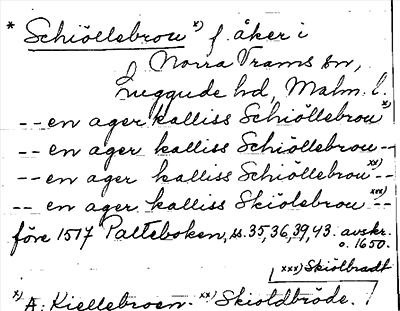 * Schiöllebrou *) f. åker i
Norra Vrams sn,
Luggude hd, Malm. l.
-- en ager kalliss Schiöllebrou *)
-- en ager kalliss Schiöllebrou --
-- en ager kalliss Schiöllebrou xx) --
-- en ager kalliss Skiölebrou xxx) --
före 1517 Palteboken, s. 35, 36, 39, 43. avskr.
o. 1650.
xxx) Skiölbradt
x) A: Kiellebroen. xx) Skioldbröde.